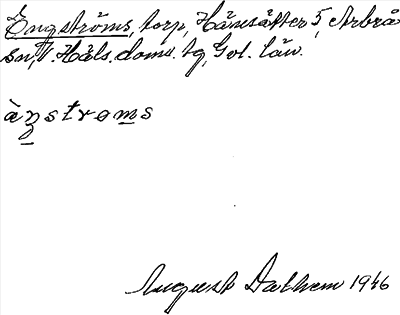 Engströms, torp, Hänsätter 5, Arbrå
sn, V. Häls. doms. tg, Gvl. län.
àŋstrøms
August Dalhem 1946